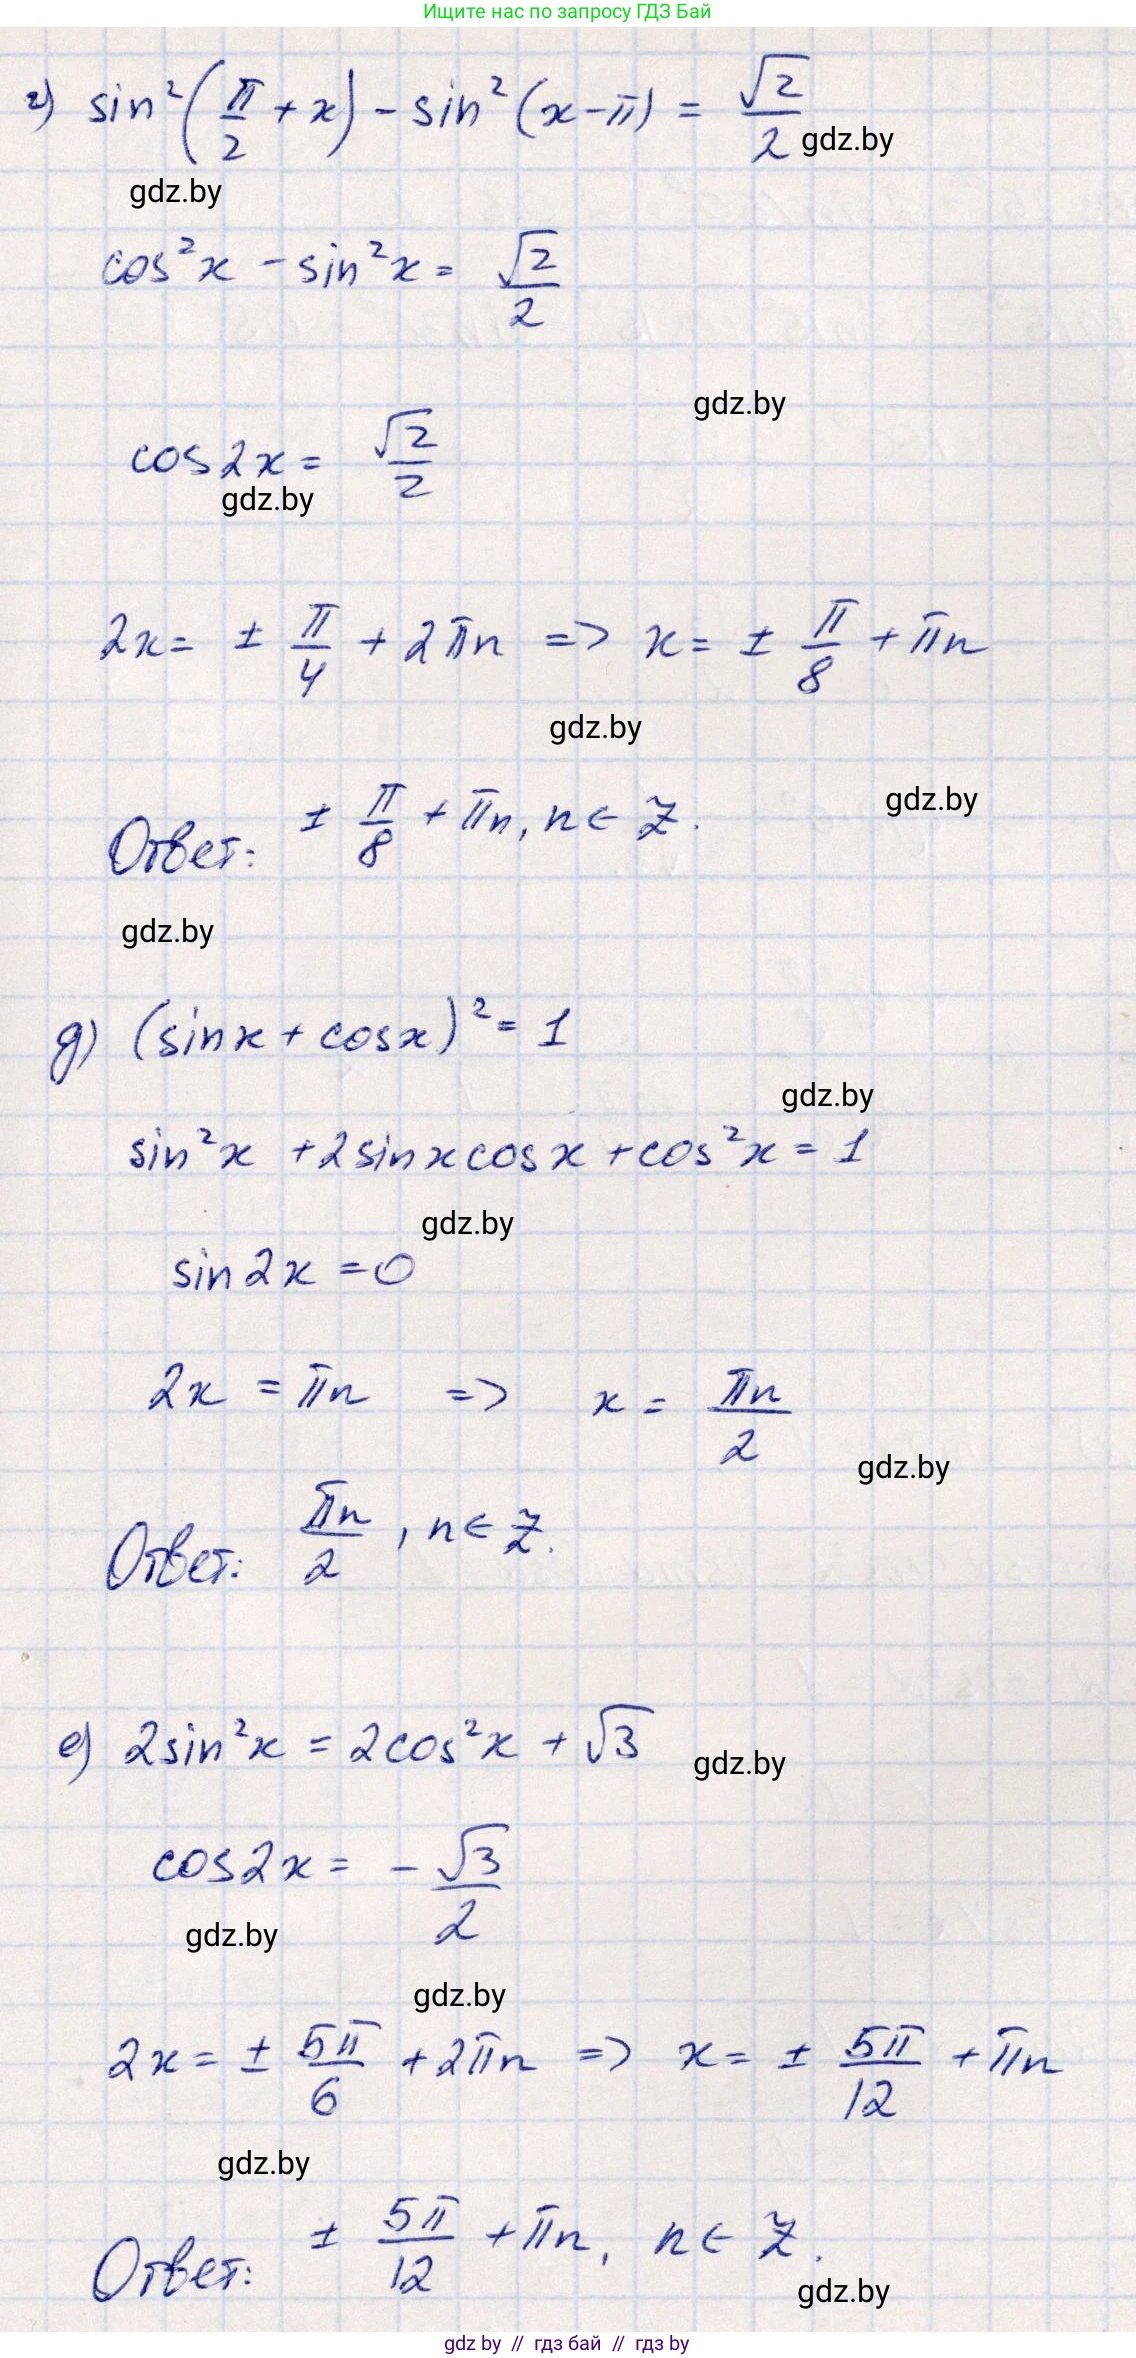 Ищите нас по запросу ГДЗ Бай
г) sin²(π/2 + x) - sin²(x-π) = √2/2
gdz.by
gdz.by
cos²x - sin²x = √2/2
gdz.by
cos2x = √2/2
gdz.by
2x = ± π/4 + 2πn => x = ± π/8 + πn
gdz.by
gdz.by
Ответ: ± π/8 + πn, n ∈ Z.
gdz.by
д) (sinx + cosx)² = 1
gdz.by
sin²x + 2sinxcosx + cos²x = 1
gdz.by
sin2x = 0
2x = πn => x = πn/2
gdz.by
Ответ: πn/2, n ∈ Z.
е) 2sin²x = 2cos²x + √3
gdz.by
cos2x = - √3/2
gdz.by
gdz.by
2x = ± 5π/6 + 2πn => x = ± 5π/12 + πn
gdz.by
Ответ: ± 5π/12 + πn, n ∈ Z.
gdz.by
gdz by // гдз бай // гдз by